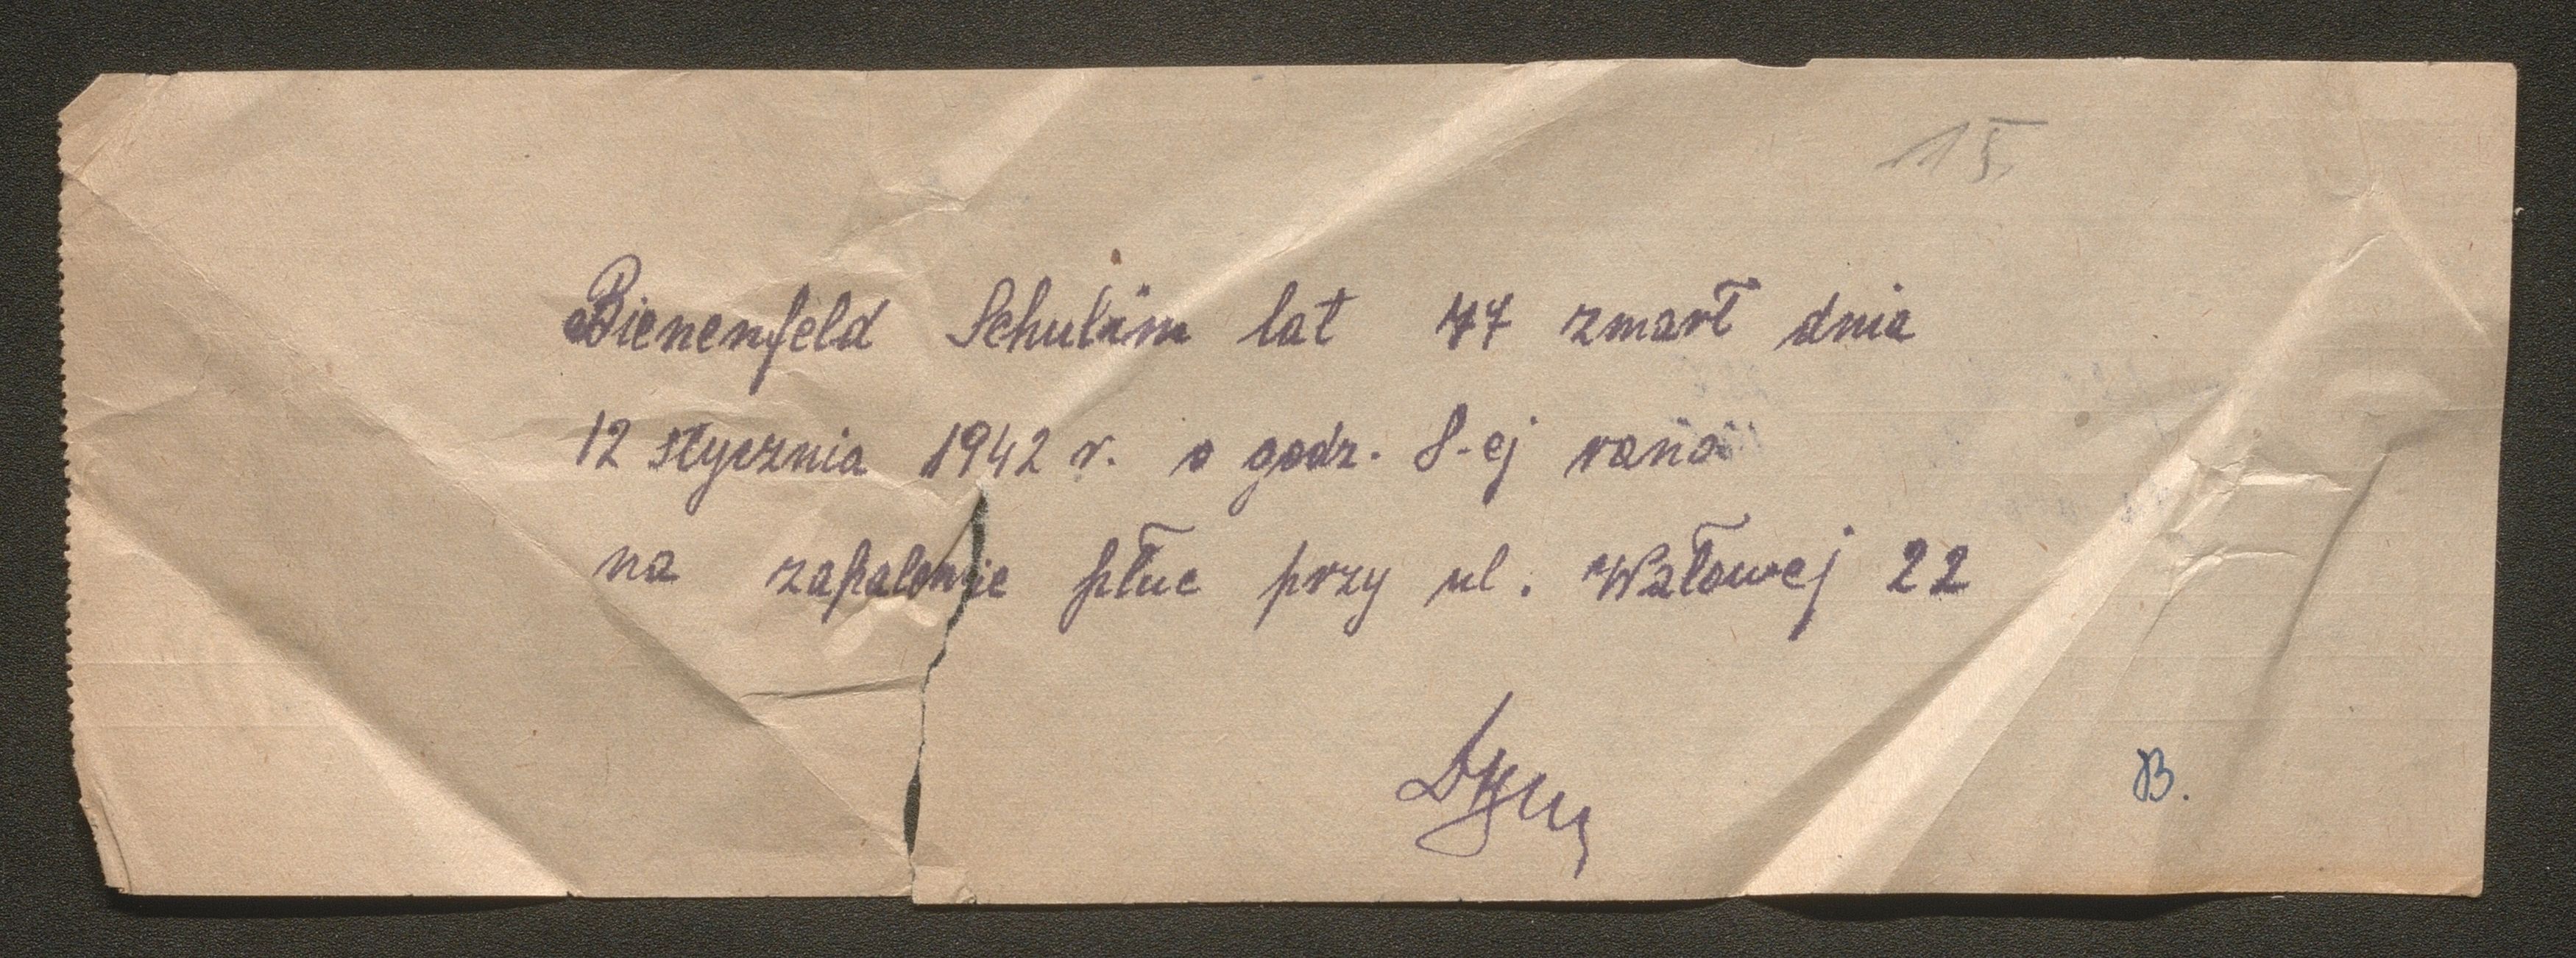 15.
Bienenfeld Schulim lat 77 zmarł dnia
12 stycznia 1942 r. o godz. 8-ej rano
na zapalenie płuc przy ul. Wałowej 22
B.